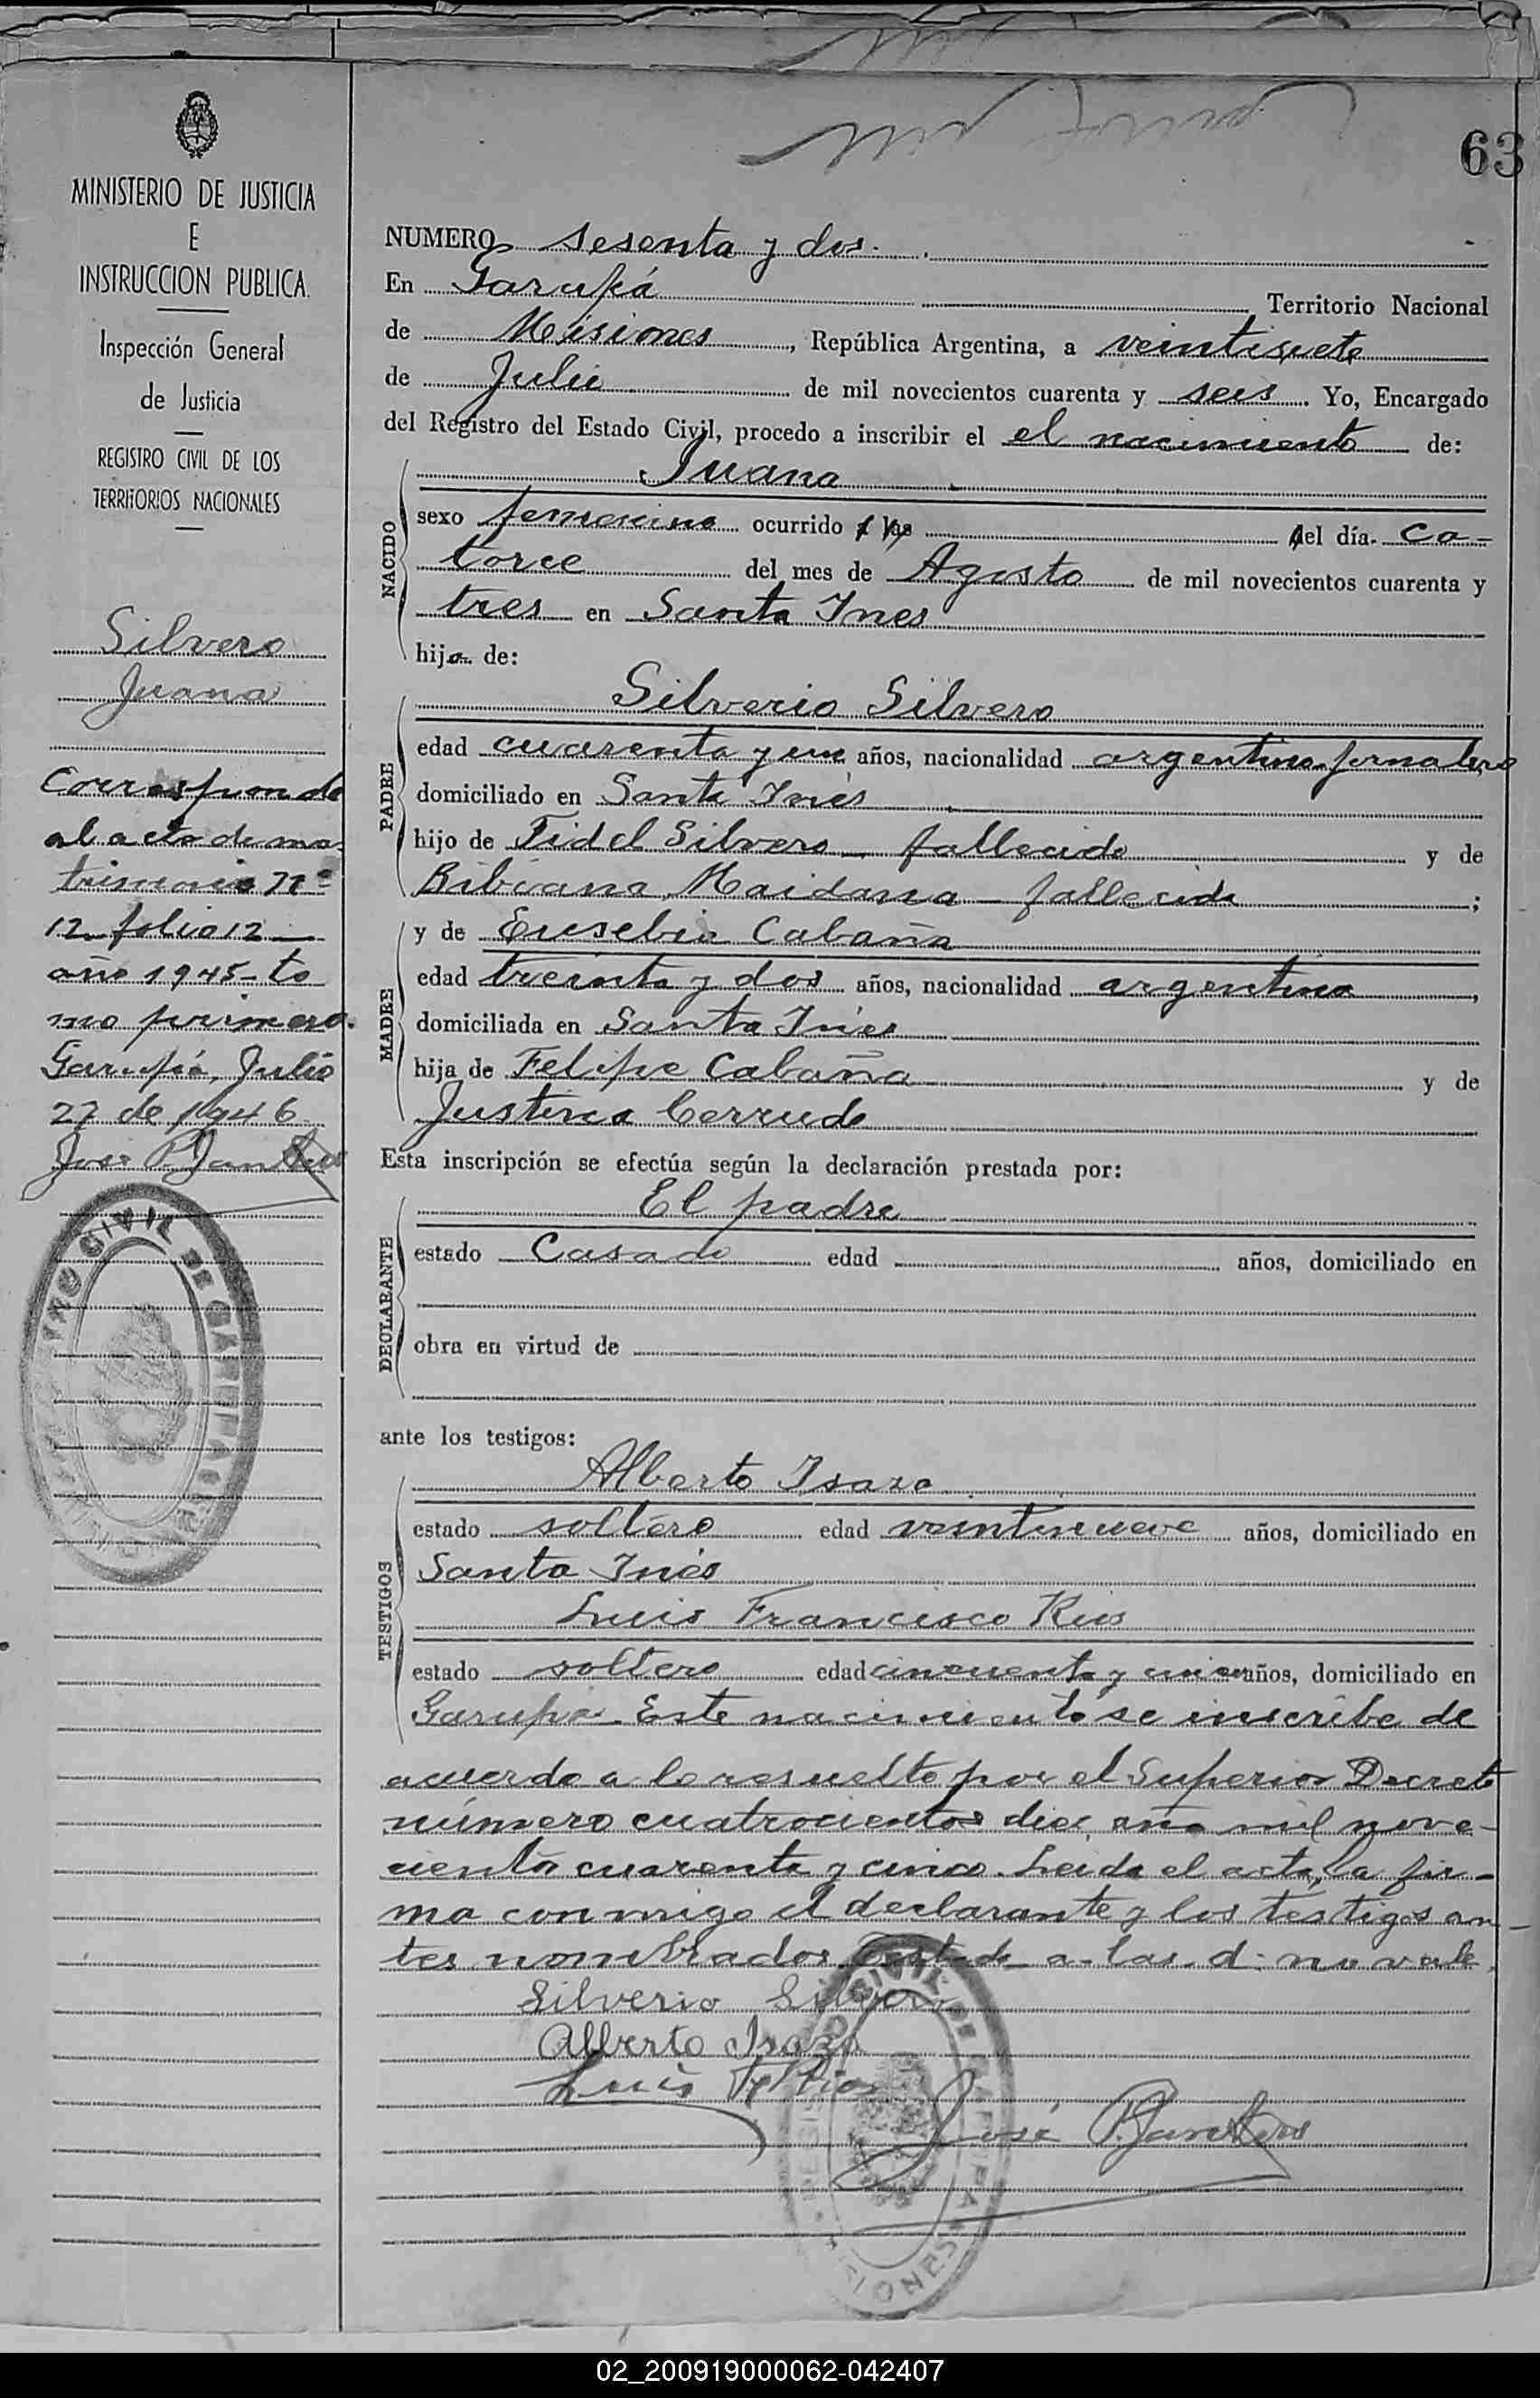 63
MINISTERIO DE JUSTICIA
E
INSTRUCCION PUBLICA.
Inspección General
de Justicia
REGISTRO CIVIL DE LOS
TERRITORIOS NACIONALES
Silvero
Juana
Corresponde
al acta de ma-
trimonio Nº
12 folio 12
año 1945 - to
mo primero.
Garupá, Julio
27 de 1946
NUMERO sesenta y dos.
En Garupá Territorio Nacional
de Misiones, República Argentina, a veintisiete
de Julio de mil novecientos cuarenta y seis. Yo, Encargado
del Registro del Estado Civil, procedo a inscribir el el nacimiento de:
NACIDO
Juana
sexo femenino ocurrido a las del día. Ca-
torce del mes de Agosto de mil novecientos cuarenta y
tres en Santa Ines
hija de:
PADRE
Silverio Silvero
edad cuarenta y un años, nacionalidad argentino jornalero
domiciliado en Santa Inés
hijo de Fidel Silvero fallecido y de
Bibiana Maidana fallecida;
MADRE
y de Eusebia Cabaña
edad treinta y dos años, nacionalidad argentina,
domiciliada en Santa Inés
hija de Felipe Cabaña y de
Justina Cerrudo
Esta inscripción se efectúa según la declaración prestada por:
DECLARANTE
El padre
estado Casado edad años, domiciliado en
obra en virtud de
ante los testigos:
TESTIGOS
Alberto Isaza
estado soltero edad veintinueve años, domiciliado en
Santa Inés
Luis Francisco Rios
estado soltero edad cincuenta y años, domiciliado en
Garupá. Este nacimiento se inscribe de
acuerdo a lo resuelto por el Superior Decreto
número cuatrocientos diez año mil nove-
ciento cuarenta y cinco. Leida el acta, la fir-
ma conmigo el declarante y los testigos an-
tes nombrados. Testado a - las - d: no vale.
Silverio Silvero
Alberto Isaza
Luis F Rios
José
02_200919000062-042407